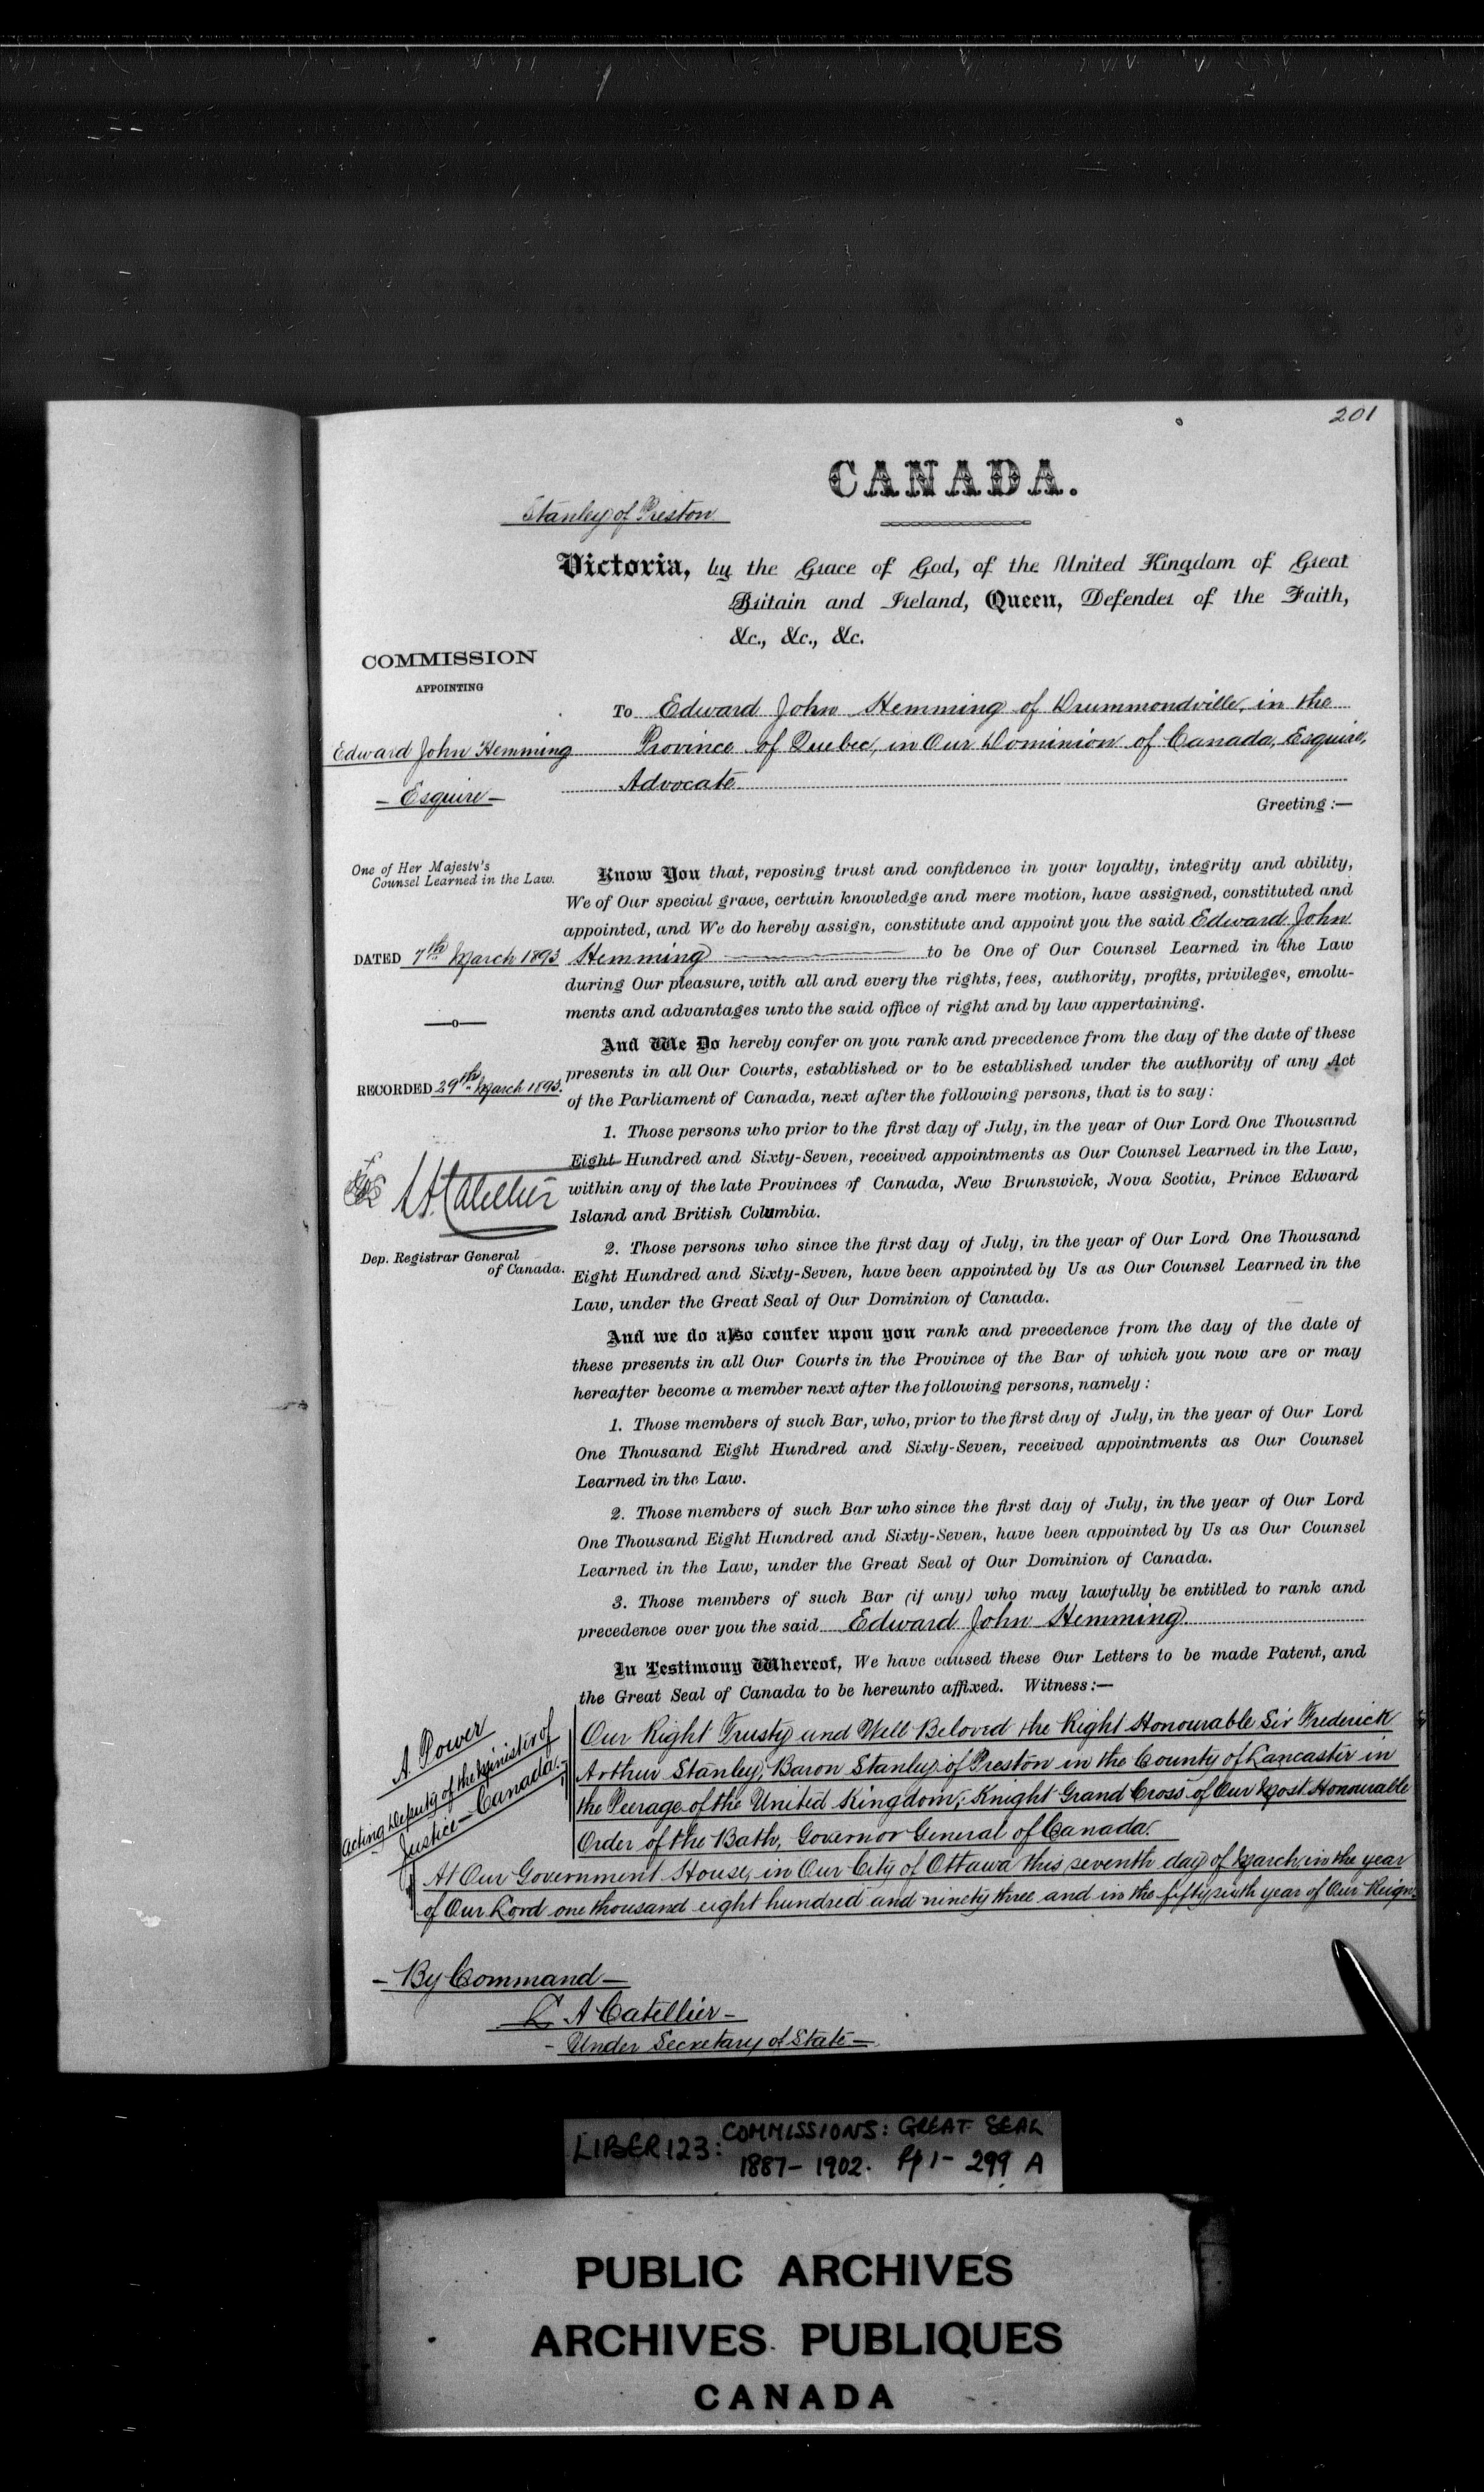 201
CANADA.
Stanley of Preston
Victoria, by the Grace of God, of the United Kingdom of Great
Britain and Ireland, Queen, Defender of the Faith,
&c., &c., &c.
COMMISSION
APPOINTING
Edward John Hemming
- Esquire -
One of Her Majesty's
Counsel Learned in the Law.
DATED 7th March 1893
RECORDED 29th March 1893.
Dep. Registrar General
of Canada.
To Edward John Hemming of Drummondville, in the
Province of Quebec, in Our Dominion of Canada, Esquire,
Advocate
Greeting:—
Know You that, reposing trust and confidence in your loyalty, integrity and ability,
We of Our special grace, certain knowledge and mere motion, have assigned, constituted and
appointed, and We do hereby assign, constitute and appoint you the said Edward John
Hemming to be One of Our Counsel Learned in the Law
during Our pleasure, with all and every the rights, fees, authority, profits, privileges, emolu-
ments and advantages unto the said office of right and by law appertaining.
And We Do hereby confer on you rank and precedence from the day of the date of these
presents in all Our Courts, established or to be established under the authority of any Act
of the Parliament of Canada, next after the following persons, that is to say:
1. Those persons who prior to the first day of July, in the year of Our Lord One Thousand
Eight Hundred and Sixty-Seven, received appointments as Our Counsel Learned in the Law,
within any of the late Provinces of Canada, New Brunswick, Nova Scotia, Prince Edward
Island and British Columbia.
2. Those persons who since the first day of July, in the year of Our Lord One Thousand
Eight Hundred and Sixty-Seven, have been appointed by Us as Our Counsel Learned in the
Law, under the Great Seal of Our Dominion of Canada.
And we do also confer upon you rank and precedence from the day of the date of
these presents in all Our Courts in the Province of the Bar of which you now are or may
hereafter become a member next after the following persons, namely:
1. Those members of such Bar, who, prior to the first day of July, in the year of Our Lord
One Thousand Eight Hundred and Sixty-Seven, received appointments as Our Counsel
Learned in the Law.
2. Those members of such Bar who since the first day of July, in the year of Our Lord
One Thousand Eight Hundred and Sixty-Seven, have been appointed by Us as Our Counsel
Learned in the Law, under the Great Seal of Our Dominion of Canada.
3. Those members of such Bar (if any) who may lawfully be entitled to rank and
precedence over you the said Edward John Hemming
In Testimony Whereof, We have caused these Our Letters to be made Patent, and
the Great Seal of Canada to be hereunto affixed. Witness:—
A Power
Acting Deputy of the Minister of
Justice - Canada.
Our Right Trusty and Well Beloved the Right Honourable Sir Frederick
Arthur Stanley, Baron Stanley of Preston in the County of Lancaster in
the Peerage of the United Kingdom; Knight Grand Cross of Our Most Honourable
Order of the Bath, Governor General of Canada.
At Our Government House, in Our City of Ottawa this seventh day of March in the year
of Our Lord one thousand eight hundred and ninety three and in the fifty sixth year of Our Reign.
- By Command -
L A Catellier -
- Under Secretary of State -
LIBER 123: COMMISSIONS: GREAT SEAL
1887 - 1902. Pp 1 - 299 A
PUBLIC ARCHIVES
ARCHIVES PUBLIQUES
CANADA